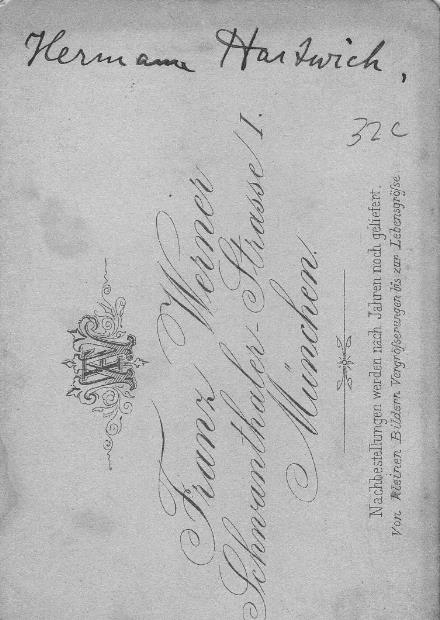 Hermann Hartwich,
32c
Franz Werner
Schwanthaler-Strasse 1.
München.
Nachbestellungen werden nach Jahren noch geliefert.
Von kleinen Bildern Vergrößerungen bis zur Lebensgröße.